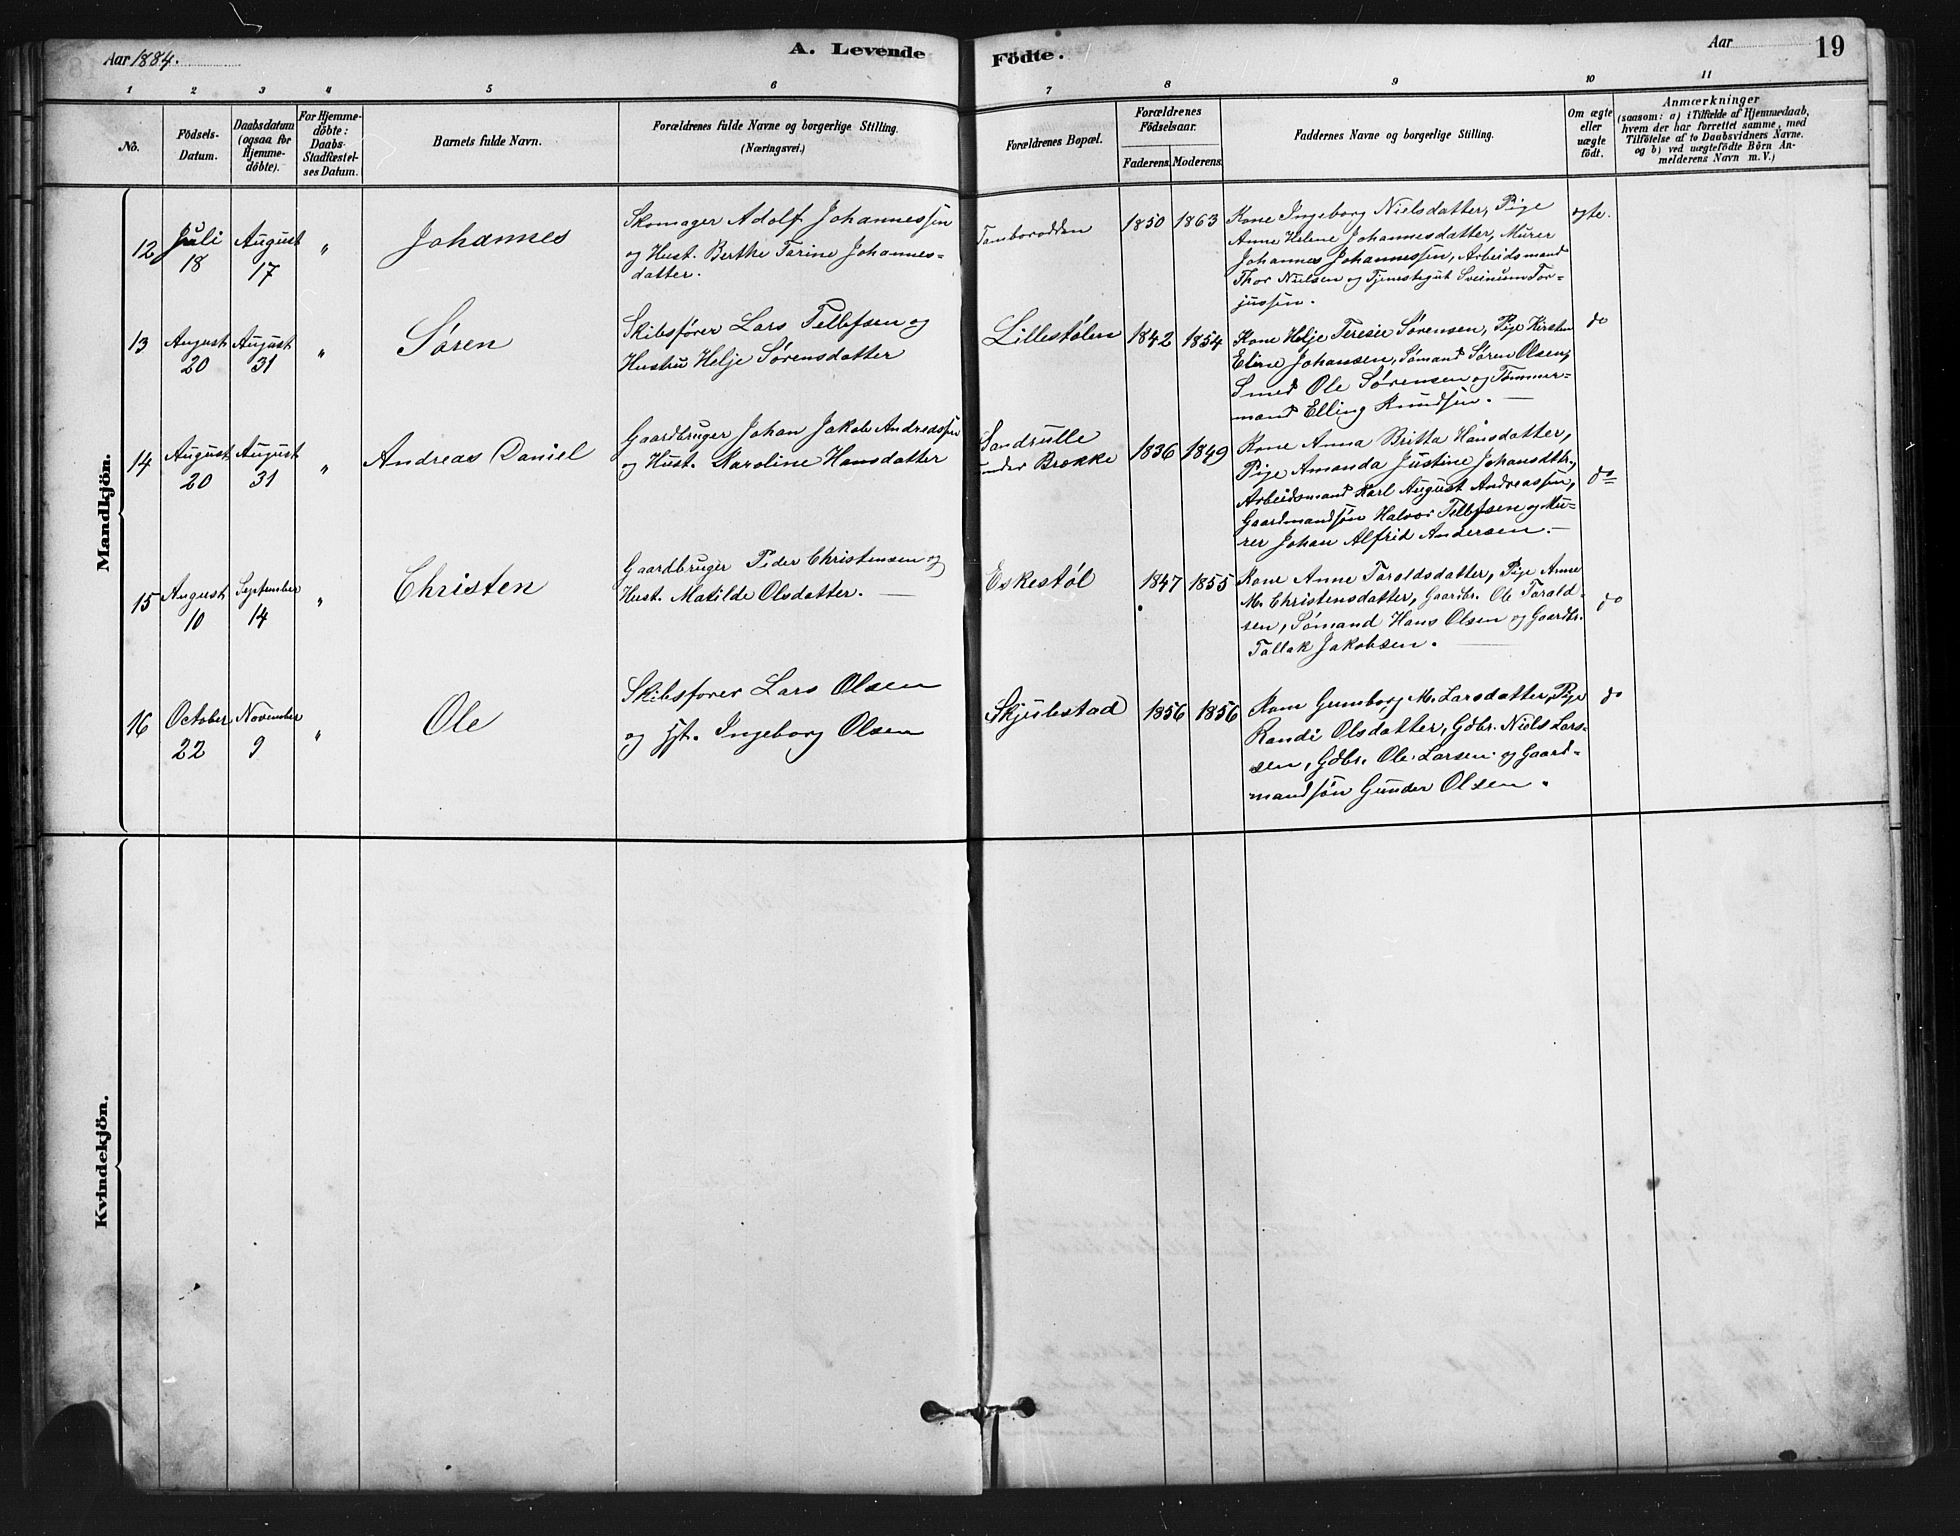 Aar 1884.
A. Levende
Födte.
Aar
19
1 2 3 4 5 6 7 8 9 10 11
No.
Födsels-
Datum.
Daabsdatum
(ogsaa for
Hjemme-
döbte).
For Hjemme-
döbte:
Daabs-
Stadfæstel-
ses Datum.
Barnets fulde Navn.
Forældrenes fulde Navne og borgerlige Stilling.
(Næringsvei.)
Forældrenes Bopæl.
Forældrenes
Födselsaar.
Faderens. Moderens.
Faddernes Navne og borgerlige Stilling.
Om ægte
eller
uægte
födt.
Anmærkninger
(saasom: a) i Tilfælde af Hjemmedaab,
hvem der har forrettet samme, med
Tilföielse af to Daabsvidners Navne.
og b) ved uægtefödte Börn An-
melderens Navn m. V.)
Mandkjön.
12
Juli
18
August
17
"
Johannes
Skomager Adolf Johannessen
og Hust. Berthe Tarine Johannes-
datter.
1850 1863
Kone Ingeborg Nielsdatter, Pige
Anne Helene Johannesdatter, Murer
Johannes Johannessen, Arbeidsmand
Thor Nielsen og Tjenestegut Sveinum Tor-
jussen.
ægte.
13
August
20
August
31
"
Søren
Skibsfører Lars Tellefsen og
Hustru Helje Sørensdatter
Lillestølen
1842 1854
Kone Helje Teresie Sørensen, Pige Kirsten
Eline Johansen, Sømand Søren Olsen,
Smed Ole Sørensen og Tømmer-
mand Elling Knudsen.
do
14
August
20
August
31
"
Andreas Daniel
Gaardbruger Johan Jakob Andreassen
og Hust. Karoline Hansdatter
Sandrulle
under Brække
1836 1849
Kone Anna Britta Hansdatter,
Pige Amanda Justine Johansdtr.,
Arbeidsmand Karl August Andreassen,
Gaardmandsøn Halvor Tellefsen og Mu-
rer Johan Alfrid Andersen.
do
15
August
10
September
14
"
Christen
Gaardbruger Peder Christensen og
Hust. Matilde Olsdatter.
Eskestøl
1847 1855
Kone Anne Taraldsdatter, Pige Anne
M. Christensdatter, Gaardbr. Ole Tarald-
sen, Sømand Hans Olsen og Gaardbr.
Tallak Jakobsen.
do
16
October
22
November
9
"
Ole
Skibsfører Lars Olsen
og Hst. Ingeborg Olsen
Skjulestad
1856 1856
Kone Gunborg M. Larsdatter, Pige
Randi Olsdatter, Gdbr. Niels Lars-
sen, Gdbr. Ole Larsen og Gaard-
mandsøn Gunder Olsen.
do
Kvindekjön.